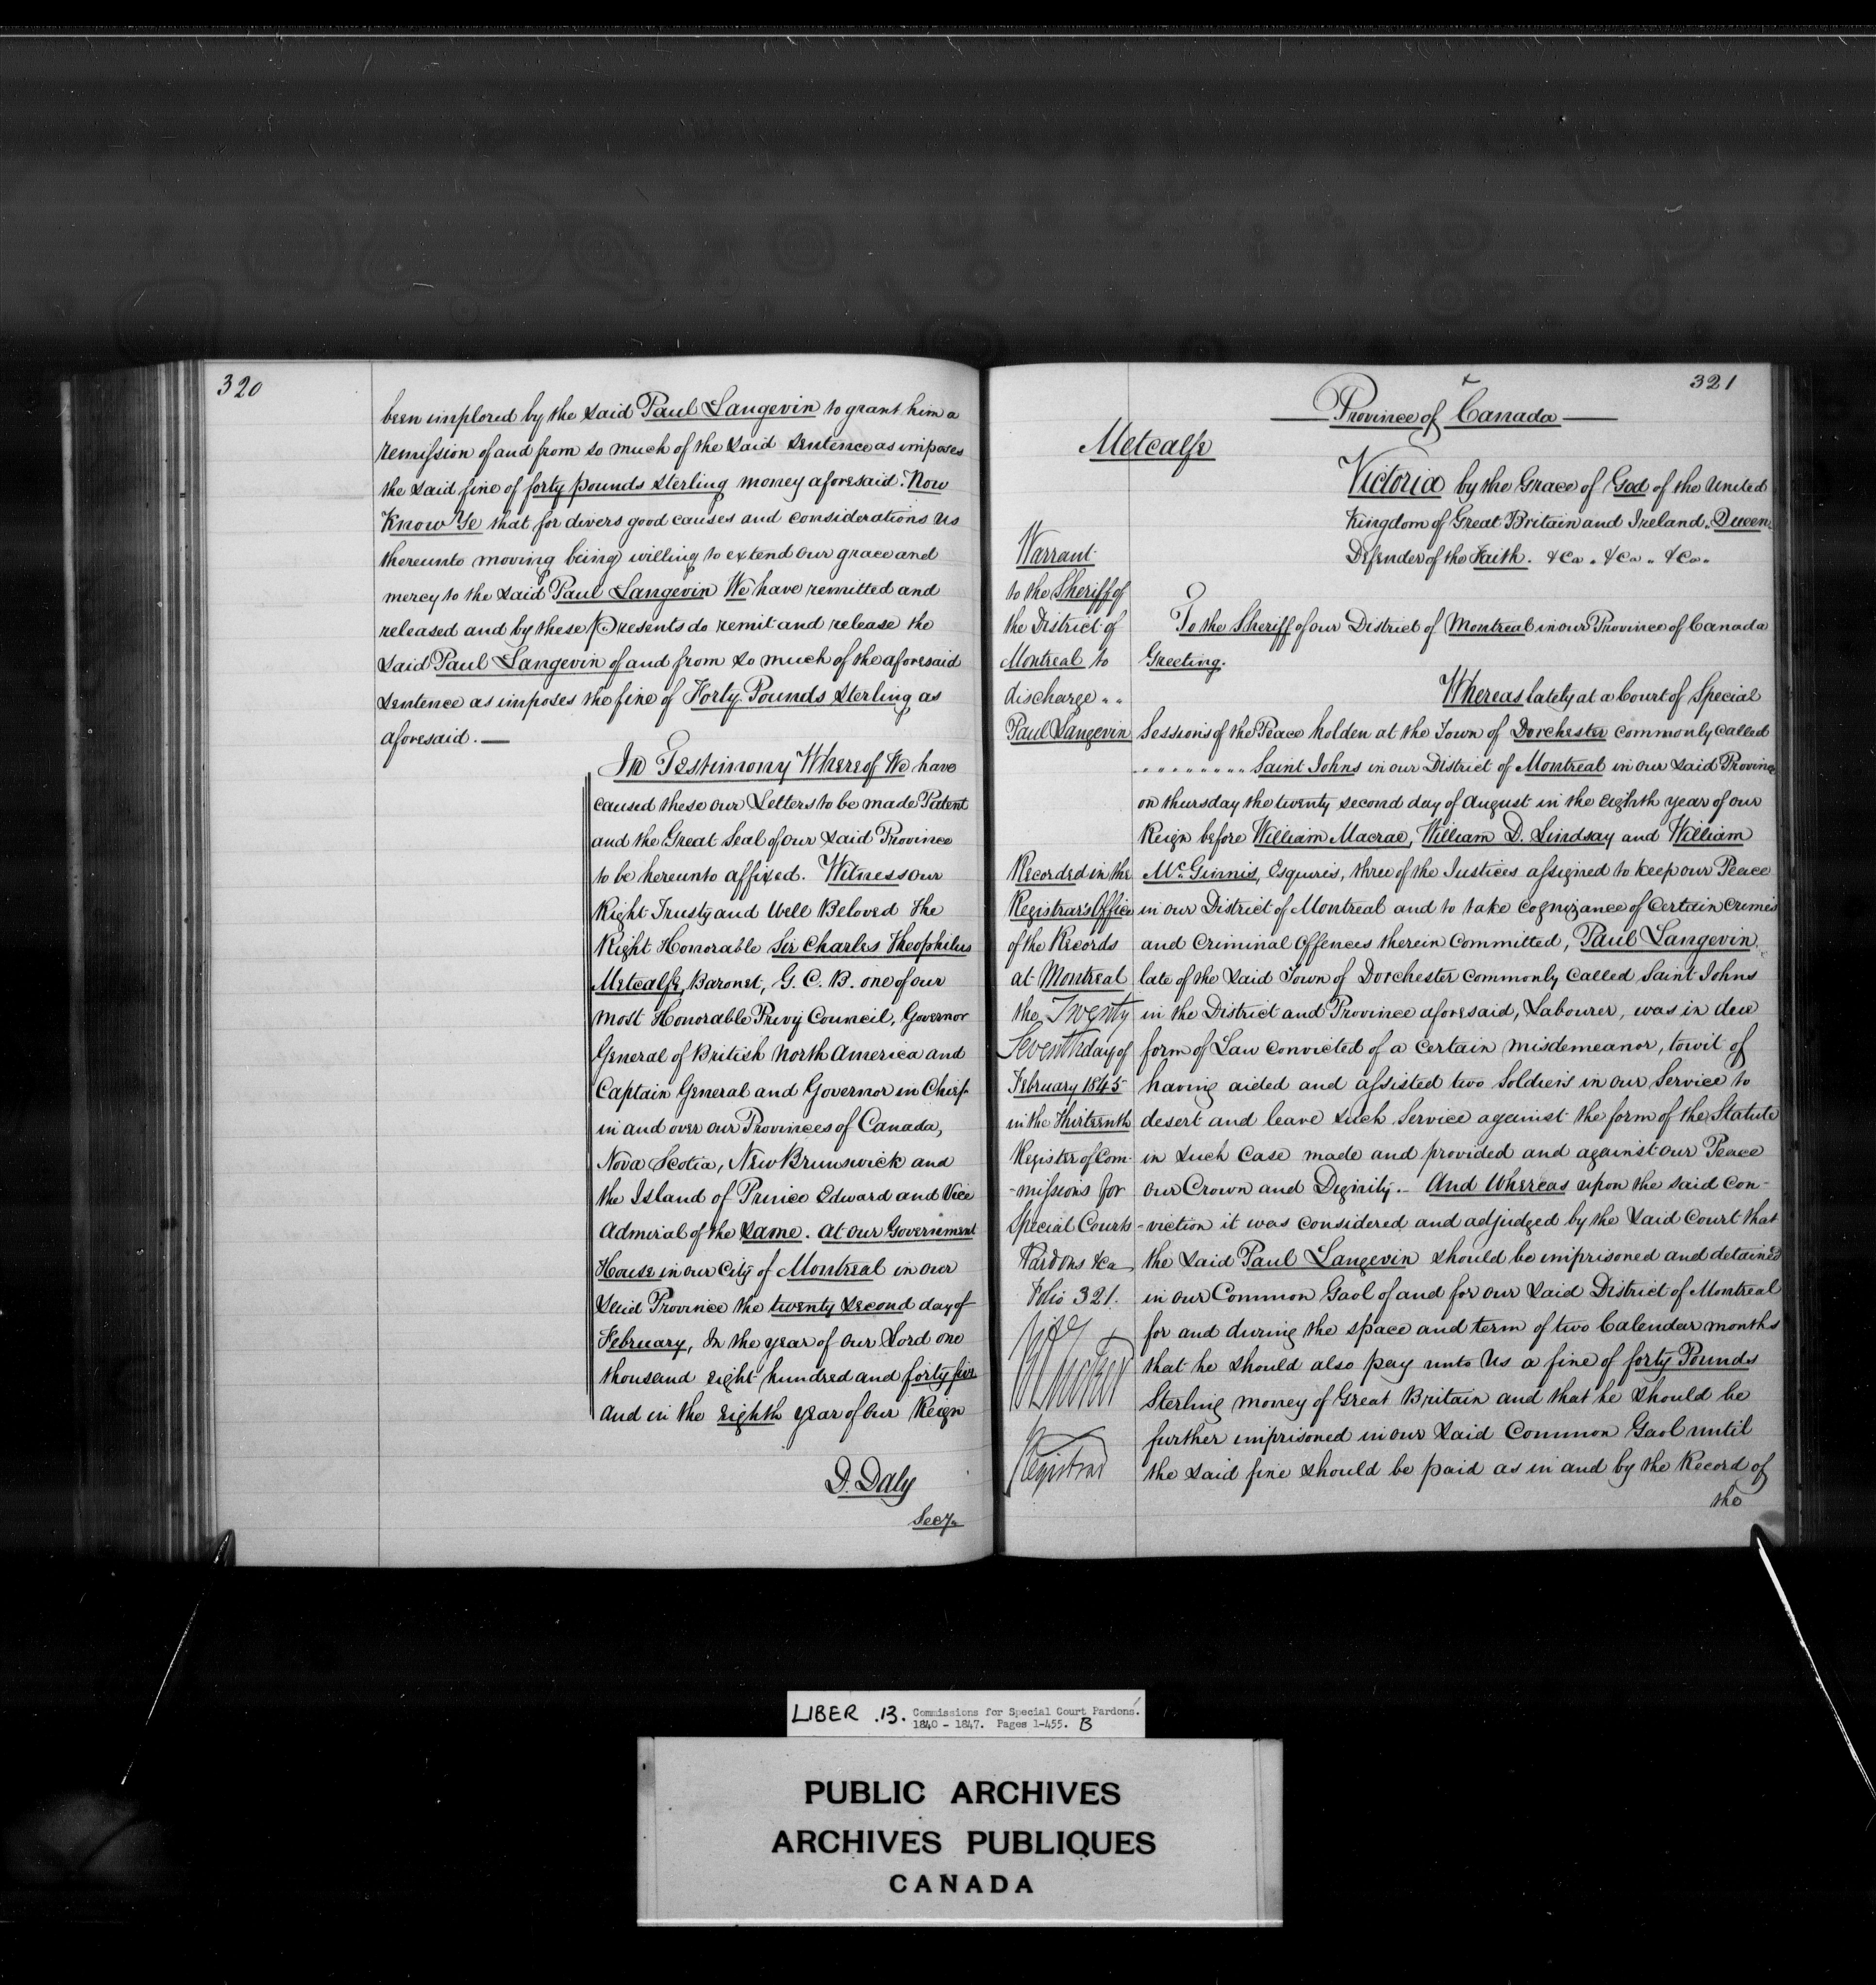 320
been implored by the said Paul Langevin to grant him a
remission of and from so much of the said sentence as imposes
the said fine of forty pounds sterling money aforesaid. Now
Know Ye that for divers good causes and considerations Us
thereunto moving being willing to extend our grace and
mercy to the said Paul Langevin We have remitted and
released and by these Presents do remit and release the
said Paul Langevin of and from so much of the aforesaid
sentence as imposes the fine of Forty Pounds Sterling as
aforesaid. —
In Testimony Whereof We have
caused these our Letters to be made Patent
and the Great Seal of our said Province
to be hereunto affixed. Witness our
Right Trusty and Well Beloved The
Right Honorable Sir Charles Theophilus
Metcalfe, Baronet, G. C. B. one of our
most Honorable Privy Council, Governor
General of British North America and
Captain General and Governor in Chief
in and over our Provinces of Canada,
Nova Scotia, New Brunswick and
the Island of Prince Edward and Vice
Admiral of the same. At our Government
House in our City of Montreal in our
said Province the twenty second day of
February, In the year of our Lord one
thousand eight hundred and forty five
and in the eighth year of Our Reign
D. Daly
Secy.
321
Province of Canada
Metcalfe
Victoria by the Grace of God of the United
Kingdom of Great Britain and Ireland, Queen,
Defender of the Faith. &Ca. &Ca. &Ca.
Warrant
to the Sheriff of
the District of
Montreal to
discharge
Paul Langevin
To the Sheriff of our District of Montreal in our Province of Canada
Greeting.
Whereas lately at a Court of Special
Sessions of the Peace holden at the Town of Dorchester commonly called
Saint Johns in our District of Montreal in our said Province
on thursday the twenty second day of August in the eighth year of our
Reign before William Macrae, William D. Lindsay and William
Mc. Ginnis, Esquires, three of the Justices assigned to keep our Peace
in our District of Montreal and to take cognizance of Certain crimes
and Criminal Offences therein Committed, Paul Langevin
late of the said Town of Dorchester Commonly called Saint Johns
in the District and Province aforesaid, Labourer, was in due
form of Law convicted of a certain misdemeanor, towit of
having aided and assisted two Soldiers in our Service to
desert and leave such Service against the form of the Statute
in such Case made and provided and against our Peace
our Crown and Dignity. And Whereas upon the said Con-
-viction it was considered and adjudged by the said Court that
the said Paul Langevin should be imprisoned and detained
in our Common Gaol of and for our said District of Montreal
for and during the space and term of two Calendar months
that he should also pay unto Us a fine of forty Pounds
Sterling money of Great Britain and that he should be
further imprisoned in our said Common Gaol until
the said fine should be paid as in and by the Record of
the
Recorded in the
Registrar's Office
of the Records
at Montreal
the Twenty
Seventh day of
February 1845
in the Thirteenth
Register of Com-
-missions for
Special Courts
Pardons &ca
Folio 321.
Registrar
LIBER .13. Commissions for Special Court Pardons.
1840 - 1847. Pages 1-455. B
PUBLIC ARCHIVES
ARCHIVES PUBLIQUES
CANADA